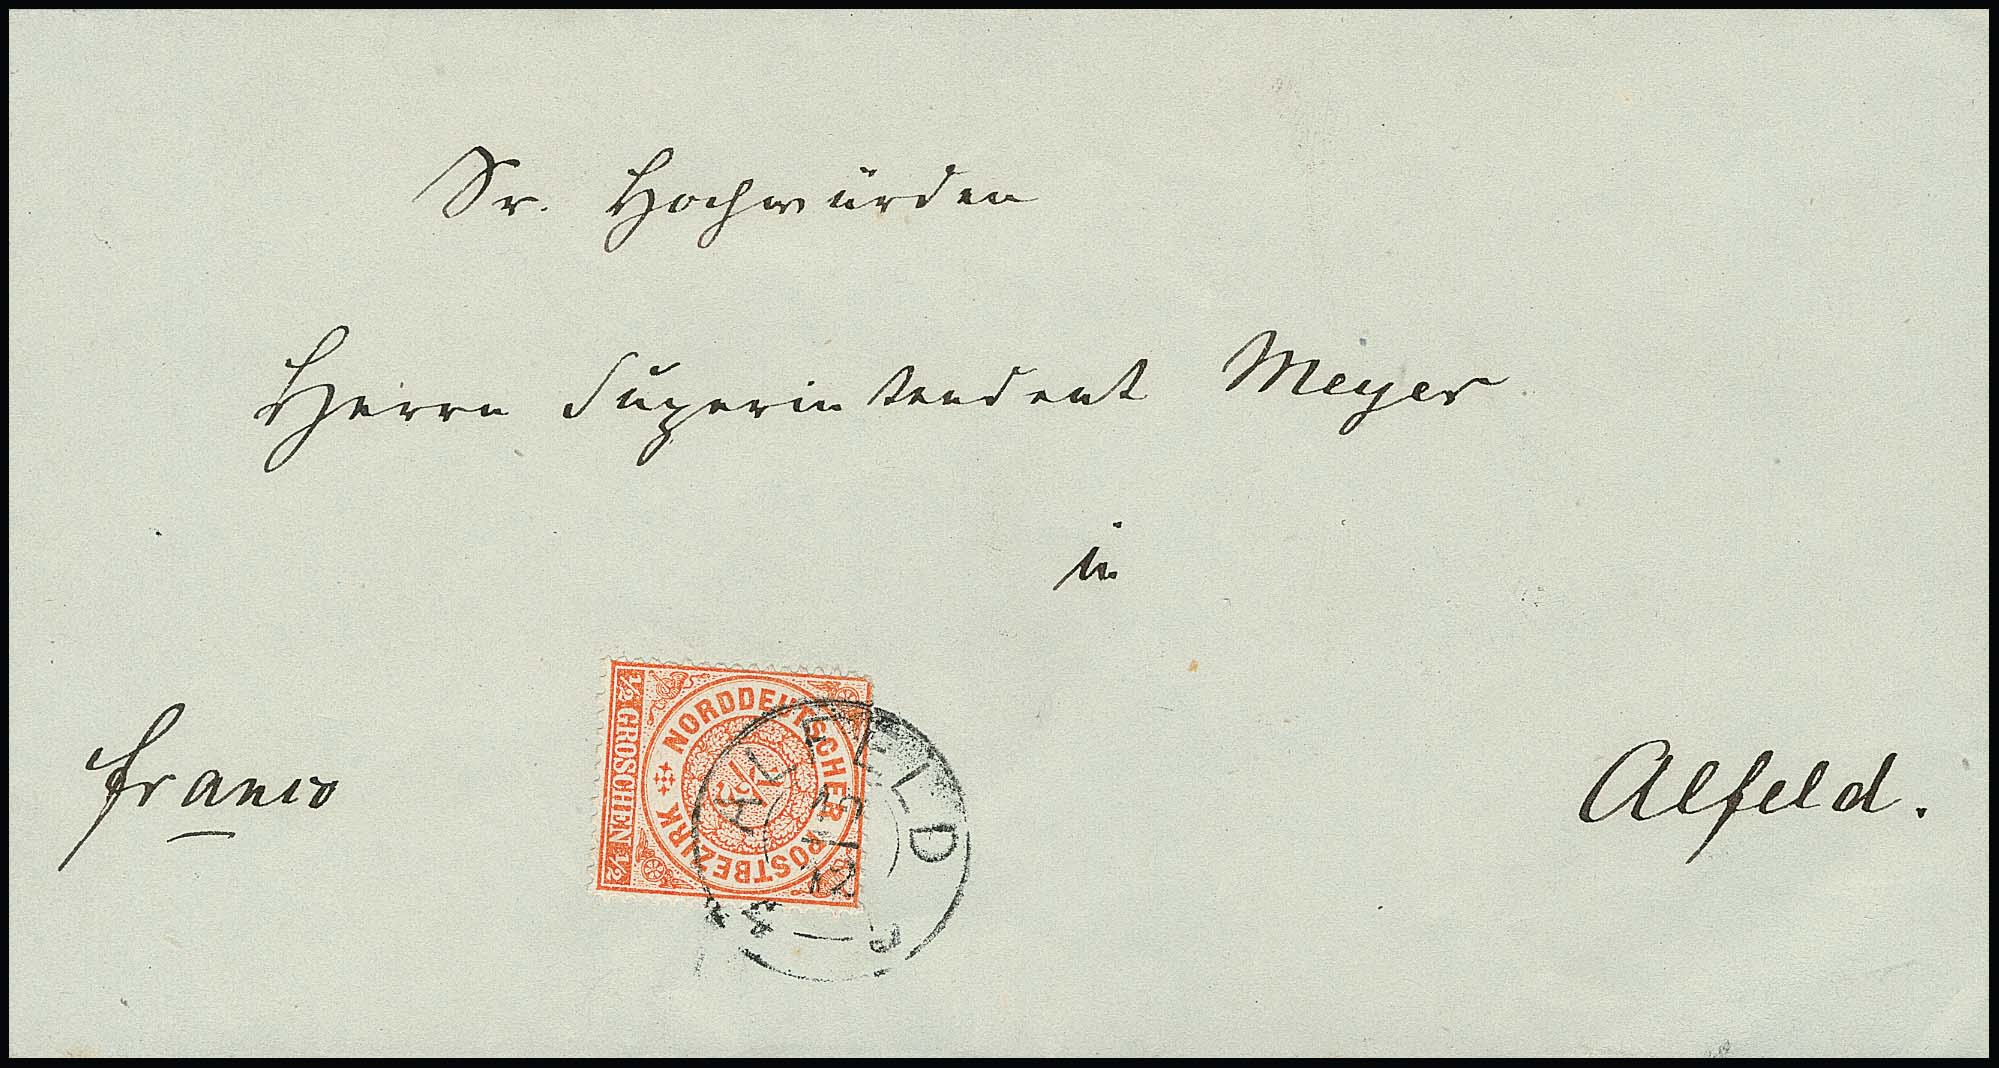 Sr. Hochwürden
Herrn Superintendent Meyer
in
franco
Alfeld.
½ GROSCHEN ½
NORDDEUTSCHER POSTBEZIRK
½
ALFELD